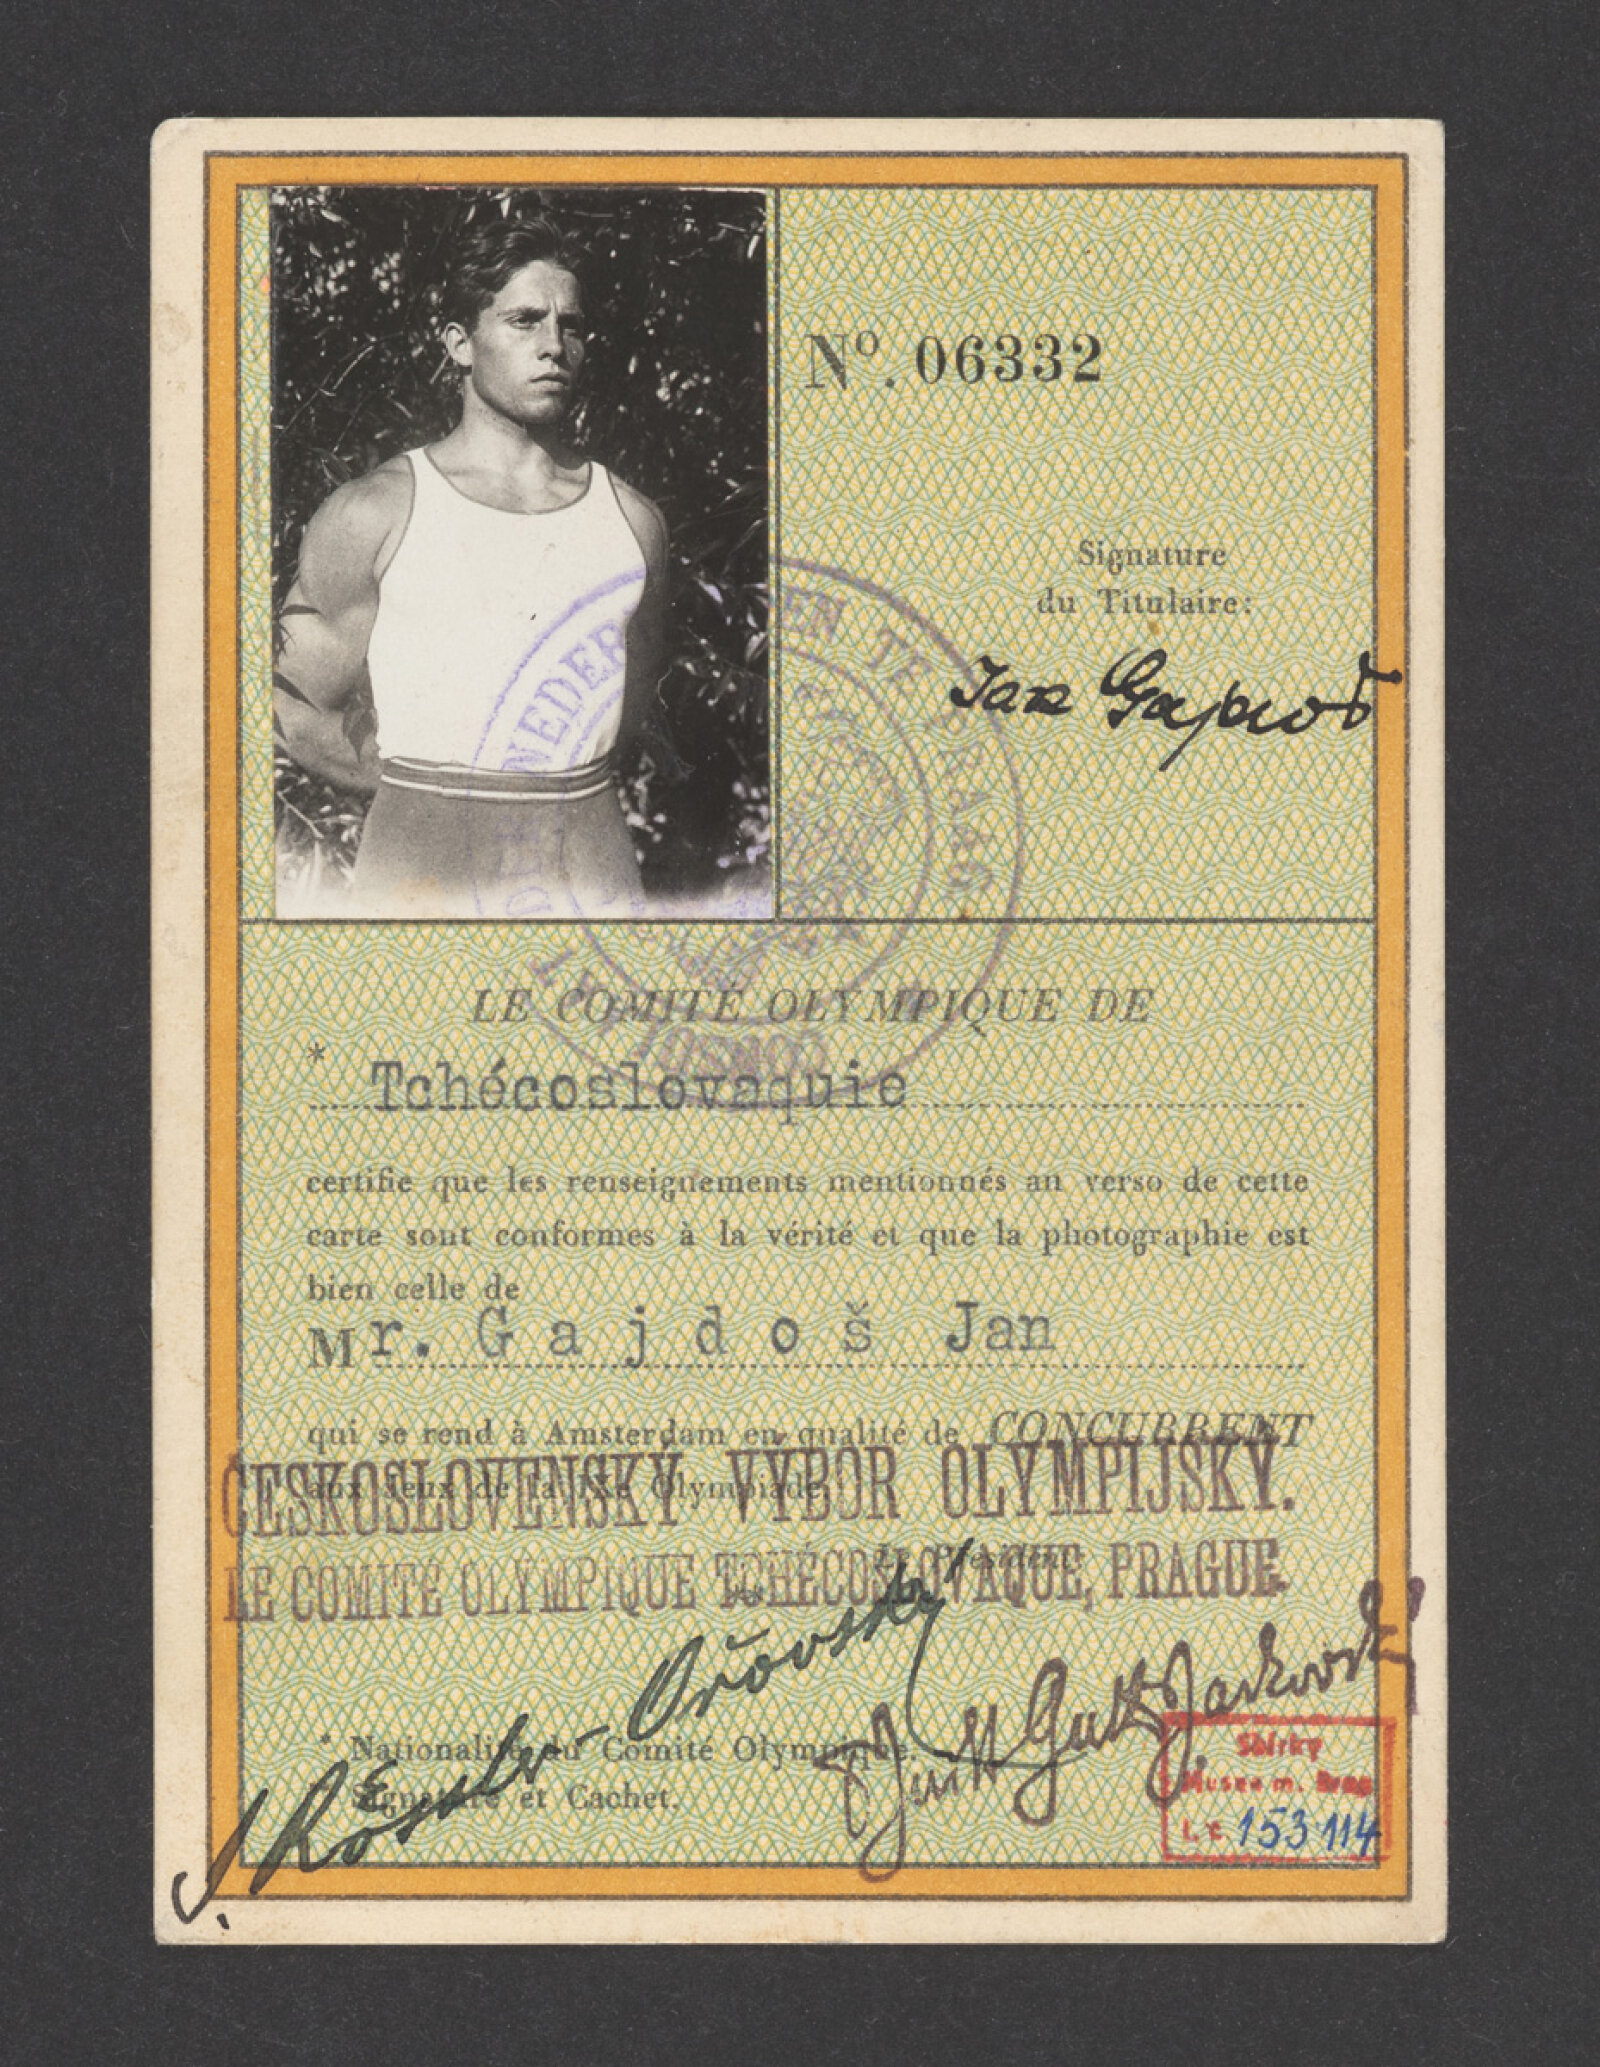 Nº. 06332
Signature
du Titulaire:
Jan Gajdoš
NEDER EN TE PRAAG
CONSUL
LE COMITÉ OLYMPIQUE DE
* Tchécoslovaquie
certifie que les renseignements mentionnés au verso de cette
carte sont conformes à la vérité et que la photographie est
bien celle de
Mr. Gajdoš Jan
qui se rend à Amsterdam en qualité de CONCURRENT
aux Jeux de la IXe Olympiade.
ČESKOSLOVENSKÝ VÝBOR OLYMPIJSKÝ.
Le Président:
LE COMITÉ OLYMPIQUE TCHÉCOSLOVAQUE, PRAGUE.
J. Rössler-Ořovský
* Nationalité du Comité Olympique.
Signature et Cachet.
Sbírky
Musea m. Brna
153·114